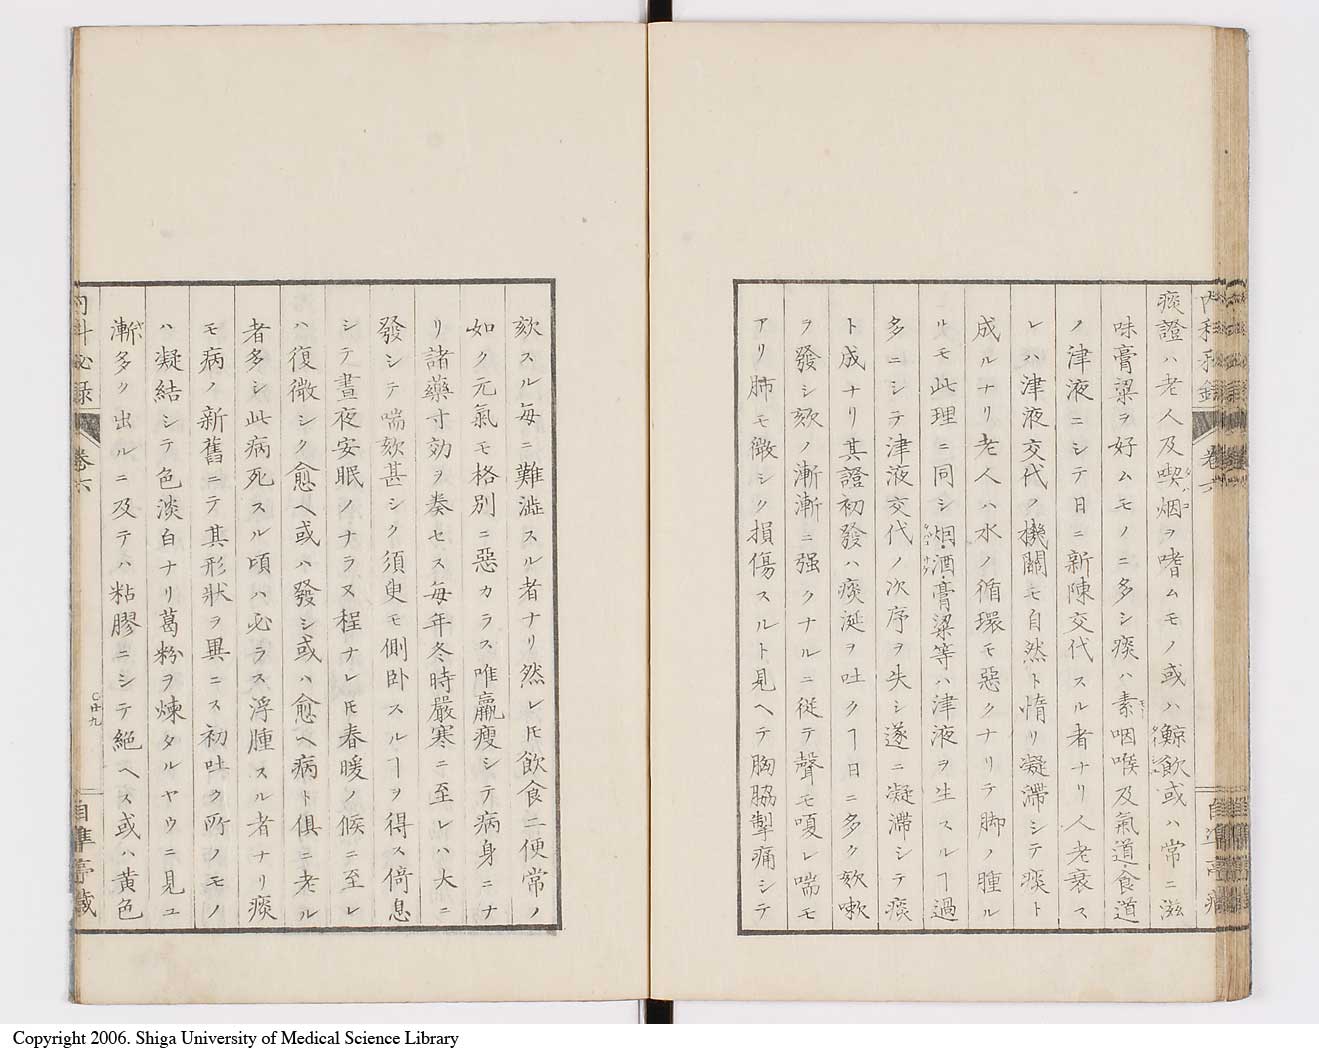 痰證ハ老人及喫烟ヲ嗜ムモノ或ハ鯨飲或ハ常ニ滋
味膏粱ヲ好ムモノニ多シ痰ハ素咽喉及氣道食道
ノ津液ニシテ日ニ新陳交代スル者ナリ人老衰ス
レハ津液交代ノ機關モ自然ト惰リ凝滯シテ痰ト
成ルナリ老人ハ水ノ循環モ惡クナリテ脚ノ腫ル
ルモ此理ニ同シ烟酒膏粱等ハ津液ヲ生スルヿ過
多ニシテ津液交代ノ次序ヲ失シ遂ニ凝滯シテ痰
ト成ナリ其證初發ハ痰涎ヲ吐クヿ日ニ多ク欬嗽
ヲ發シ欬ノ漸漸ニ强クナルニ従テ聲モ嗄レ喘モ
アリ肺モ微シク損傷スルト見ヘテ胸脇掣痛シテ
内科秘録
卷六
自準亭藏
欬スル毎ニ難澁スル者ナリ然レ𪜈飲食ニ便常ノ
如ク元氣モ格別ニ惡カラス唯羸瘦シテ病身ニナ
リ諸藥寸効ヲ奏セス毎年冬時嚴寒ニ至レハ大ニ
發シテ喘欬甚シク須臾モ側卧スルヿヲ得ス倚息
シテ晝夜安眠ノナラヌ程ナレ𪜈春暖ノ候ニ至レ
ハ復微シク愈ヘ或ハ發シ或ハ愈ヘ病ト俱ニ老ル
者多シ此病死スル頃ハ必ラス浮腫スル者ナリ痰
モ病ノ新舊ニテ其形狀ヲ異ニス初吐ク所ノモノ
ハ凝結シテ色淡白ナリ葛粉ヲ煉タルヤウニ見ユ
漸多ク出ルニ及テハ粘膠ニシテ絕ヘス或ハ黄色
内科秘録
卷六
自準亭藏
Copyright 2006. Shiga University of Medical Science Library